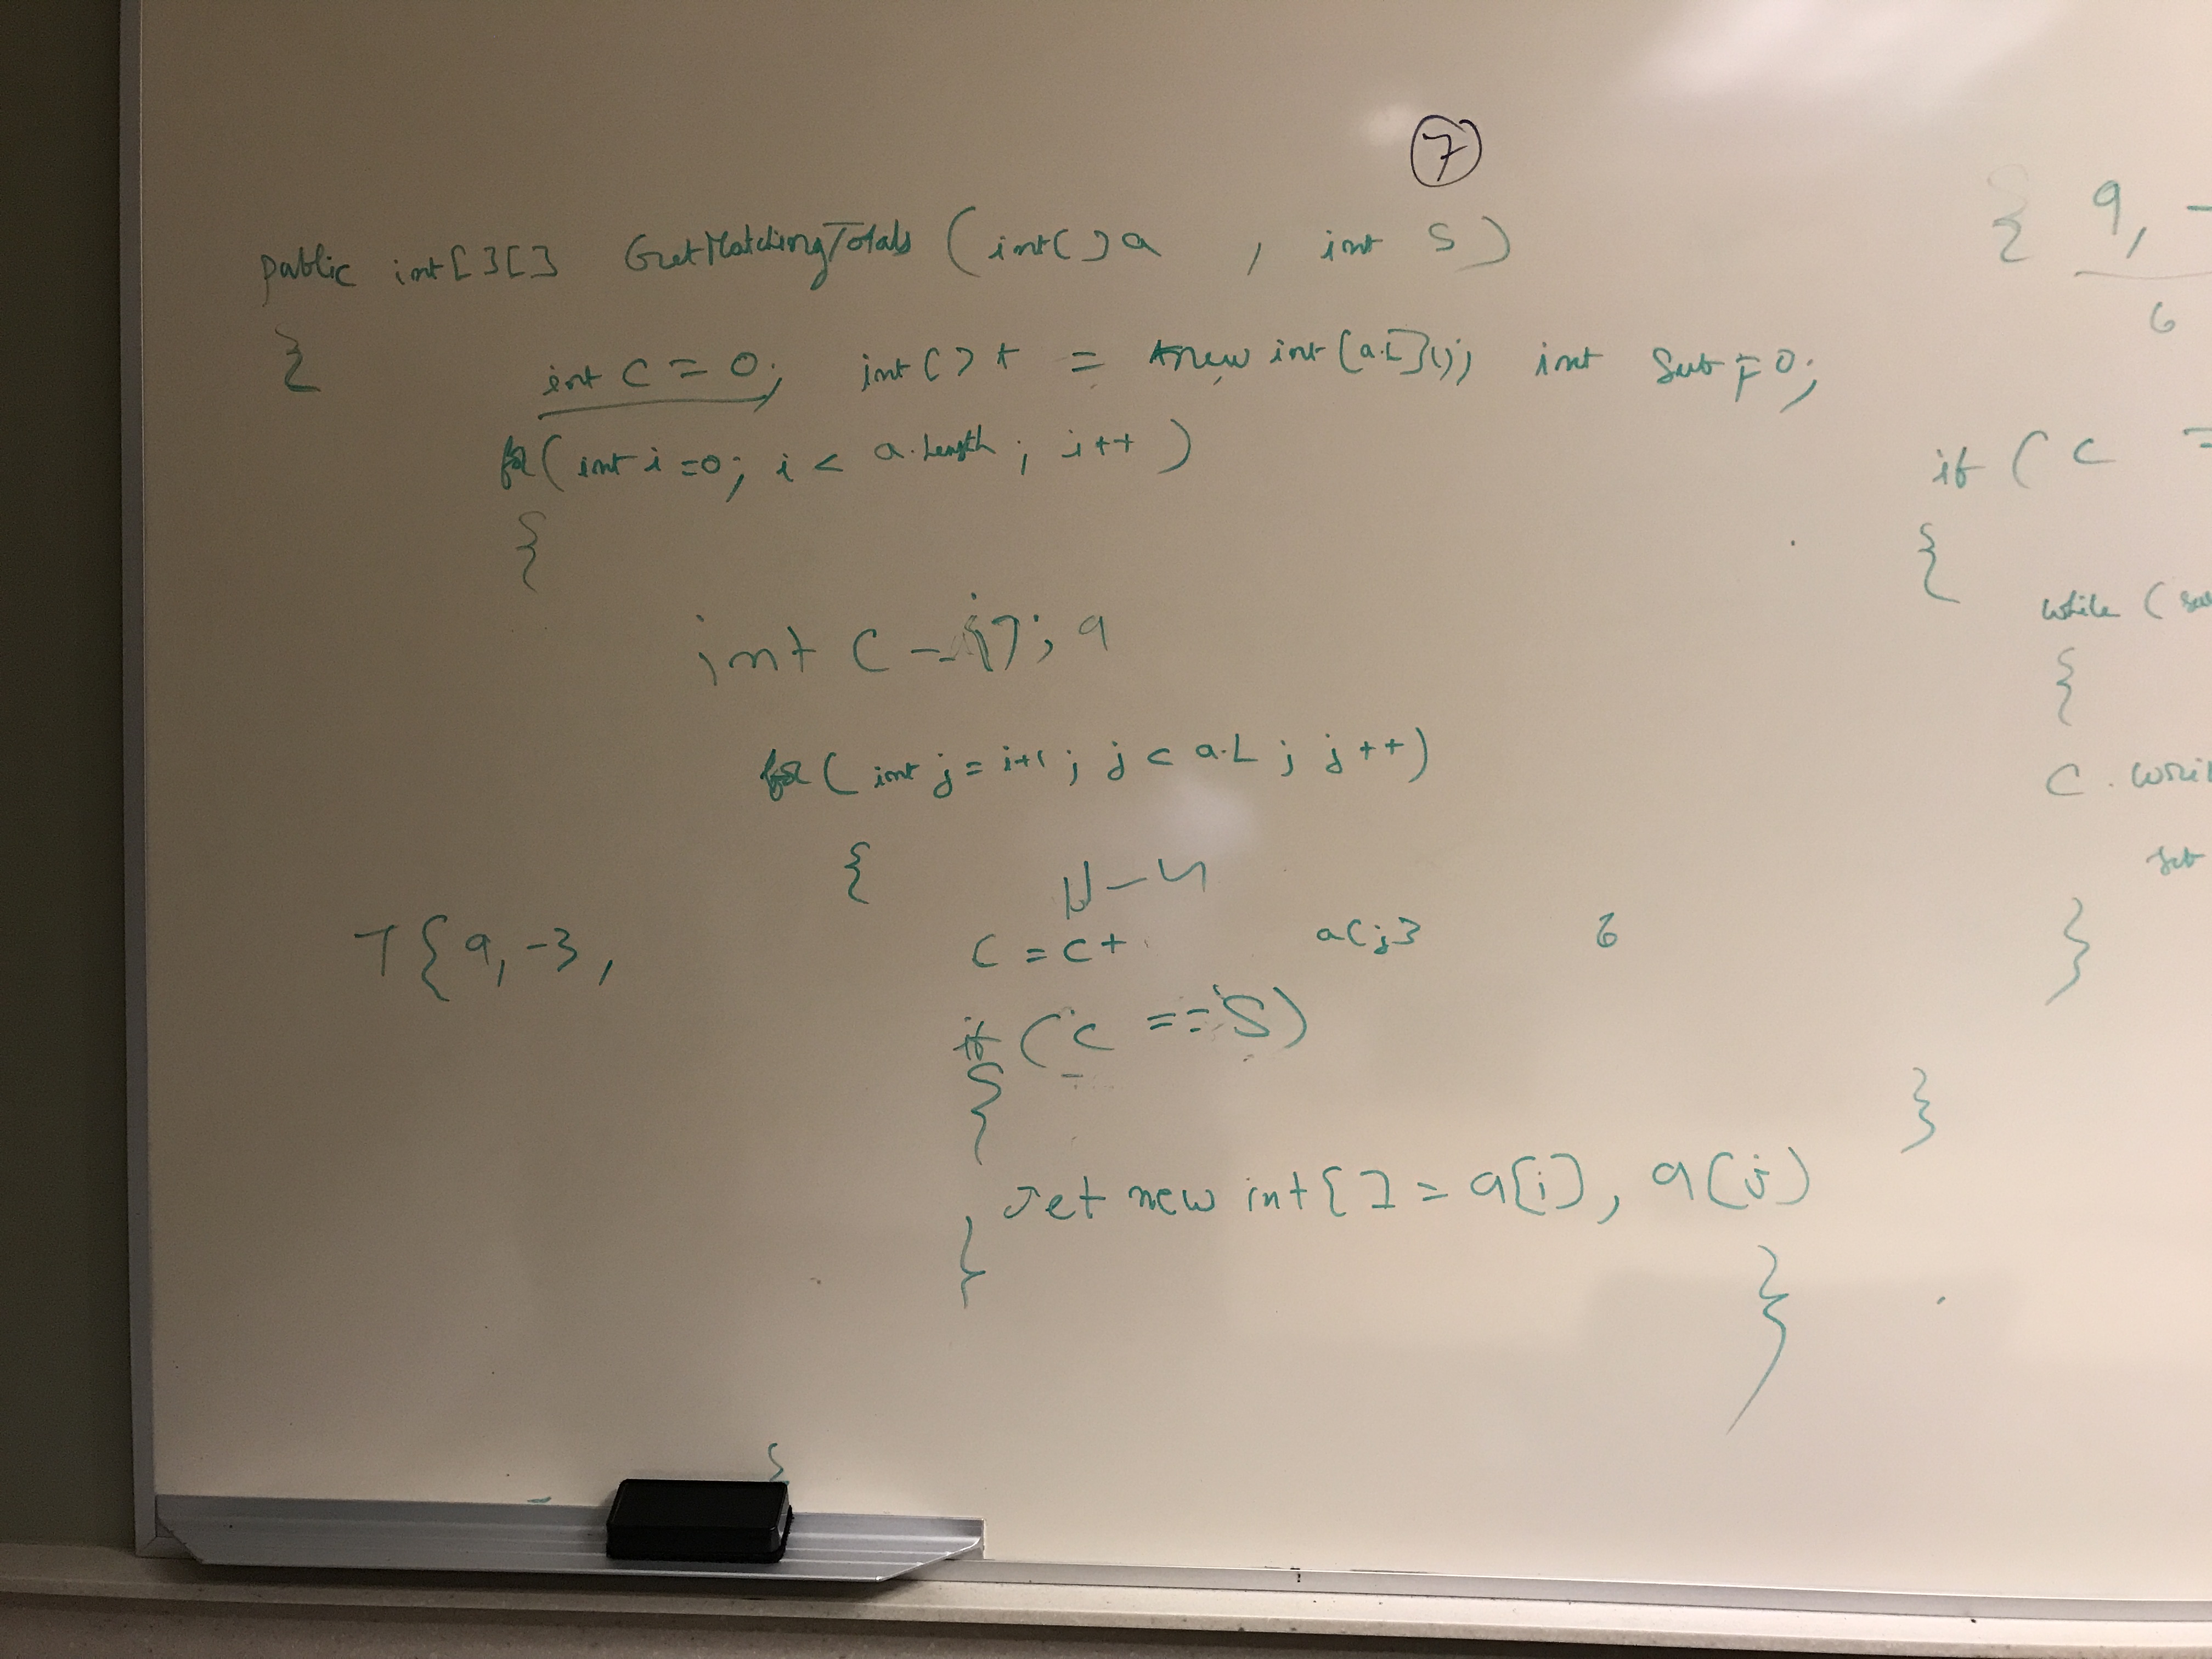 7
public int[][] GetMatchingTotals (int[] a , int S)
{ int c = 0; int[] t = new int[a.L]; int Sub = 0;
for(int i=0; i < a.Length; i++)
{
int c
for(int j=i+1; j < a.L; j++)
{
c = c + a[j] 6
T{9,-3,
if (c == S)
{
ret new int[] = a[i], a[j]
}
}
{ 9, -
6
if ( c =
{
while (
{
c.
}
}